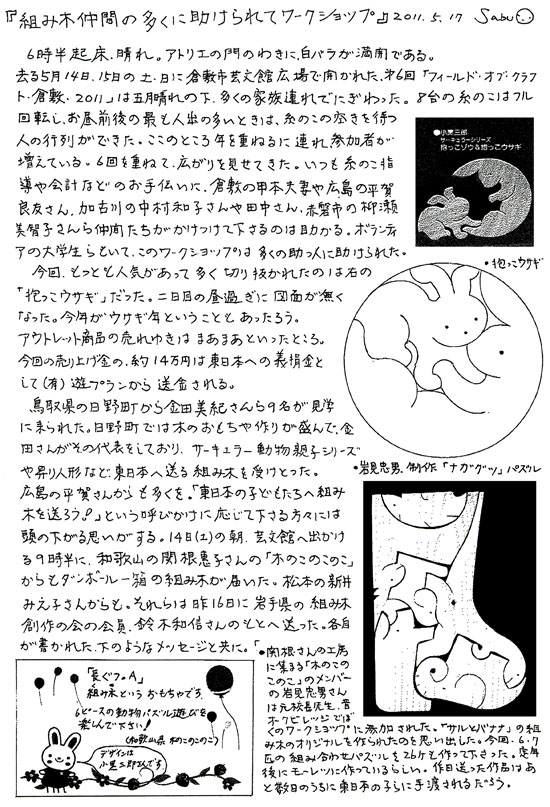 『組み木仲間の多くに助けられてワークショップ』2011.5.17 Sabu
6時半起床、晴れ。アトリエの門のわきに、白バラが満開である。
去る5月14日、15日の土・日に倉敷市芸文館広場で開かれた、第6回「フィールド・オブ・クラフ
ト・倉敷・2011」は五月晴れの下、多くの家族連れでにぎわった。8台の糸のこはフル
回転し、お昼前後の最も人出の多いときは、糸のこの空きを待つ
人の行列ができた。ここのところ年を重ねるに連れ参加者が
増えている。6回を重ねて、広がりを見せてきた。いつも糸のこ指
導や会計などのお手伝いに、倉敷の甲本夫妻や広島の平賀
良友さん、加古川の中村和子さんや田中さん、赤磐市の柳瀬
美智子さんら仲間たちがかけつけて下さるのは助かる。ボランティ
アの大学生らといて、このワークショップは多くの助っ人に助けられた。
今回、もっとも人気があって多く切り抜かれたのは右の
「抱っこウサギ」だった。二日目の昼過ぎに図面が無く
なった。今年がウサギ年ということもあったろう。
アウトレット商品の売れゆきはまあまあといったところ。
今回の売り上げ金の、約14万円は東日本への義捐金と
して(有)遊プランから送金される。
鳥取県の日野町から金田美紀さんら9名が見学
に来られた。日野町では木のおもちゃ作りが盛んで、金
田さんがその代表をしており、サーキュラー動物親子シリーズ
や昇り人形など、東日本へ送る組み木を受けとった。
広島の平賀さんからも多くを。「東日本の子どもたちへ組み
木を送ろう!」という呼びかけに応じて下さる方々には
頭の下がる思いがする。14日(土)の朝、芸文館へ出かけ
る9時半に、和歌山の関根恵子さんの「木のこのこのこ」
からもダンボール一箱の組み木が届いた。松本の新井
みえ子さんからも。それらは昨16日に岩手県の組み木
創作の会の会員、鈴木和信さんのもとへ送った。各自
が書かれた、下のようなメッセージと共に。
●小黒三郎
サーキュラーシリーズ
抱っこゾウ&抱っこウサギ
・抱っこウサギ
・岩見忠男、制作「ナガグツ」パズル
「長ぐつ。A」
組み木というおもちゃです
6ピースの動物パズル遊びを
楽しんで下さい!
(和歌山県 木のこのこのこ)
デザインは
小黒三郎さんです
・関根さんの工房
に集まる「木のこの
このこ」のメンバー
の岩見忠男さん
は元校長先生、
オークビレッジでぼ
くのワークショップに参加された。「サルとバナナ」の組
み木のオリジナルを作られたのを思い出した。今回、6・7
匹の組み合わせパズルを26ケと作って下さった。定年
後にモーレツに作っているらしい。昨日送った作品はあ
と数日のうちに東日本の子らに手渡されるだろう。